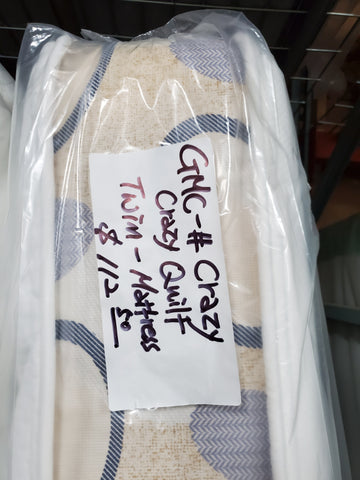 GMC-# Crazy
Crazy Quilt
Twin - Mattress
$ 112 50